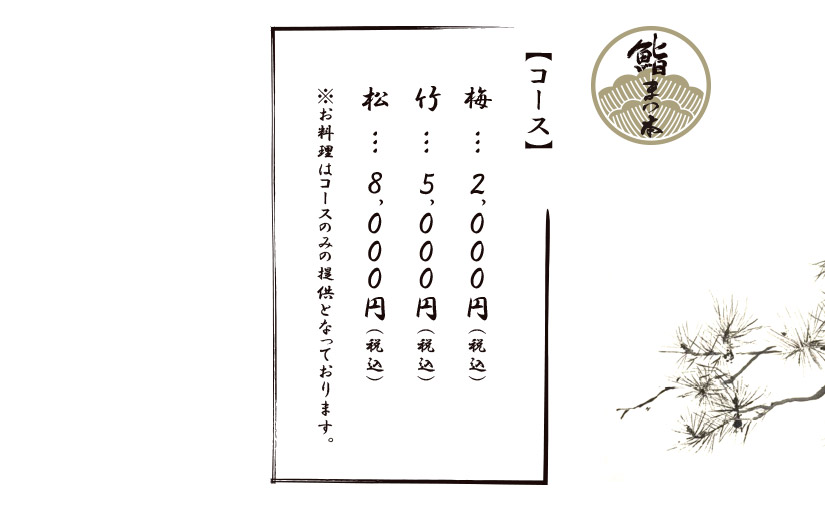 鮨まつ本
【コース】
梅…2,000円(税込)
竹…5,000円(税込)
松…8,000円(税込)
※お料理はコースのみの提供となっております。